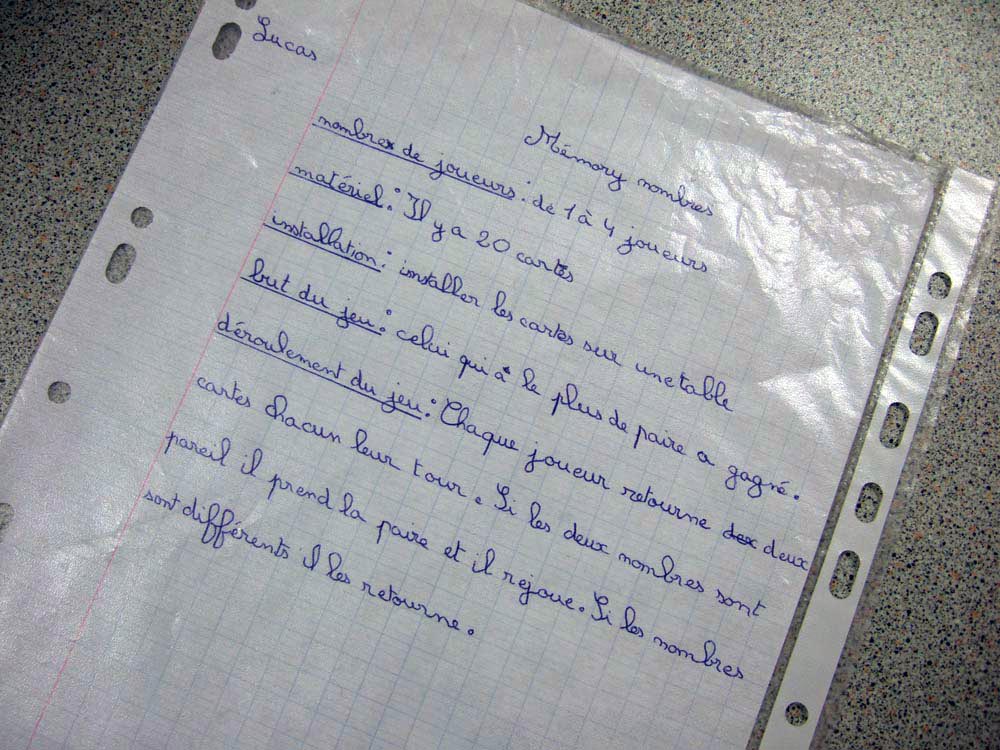 Lucas
Mémory nombres
nombre de joueurs : de 1 à 4 joueurs
matériel : Il y a 20 cartes
installation : installer les cartes sur une table
but du jeu : celui qui à le plus de paire a gagné.
déroulement du jeu : Chaque joueur retourne deux
cartes chacun leur tour. Si les deux nombres sont
pareil il prend la paire et il rejoue. Si les nombres
sont différents il les retourne.